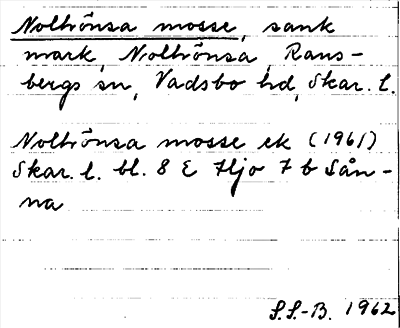 Noltrönsa mosse, sank
mark, Noltrönsa, Rans-
bergs sn, Vadsbo hd, Skar. l.
Noltrönsa mosse ek (1961)
Skar. l. bl. 8 E Hjo 7 b Sån-
na
S.S.-B. 1962